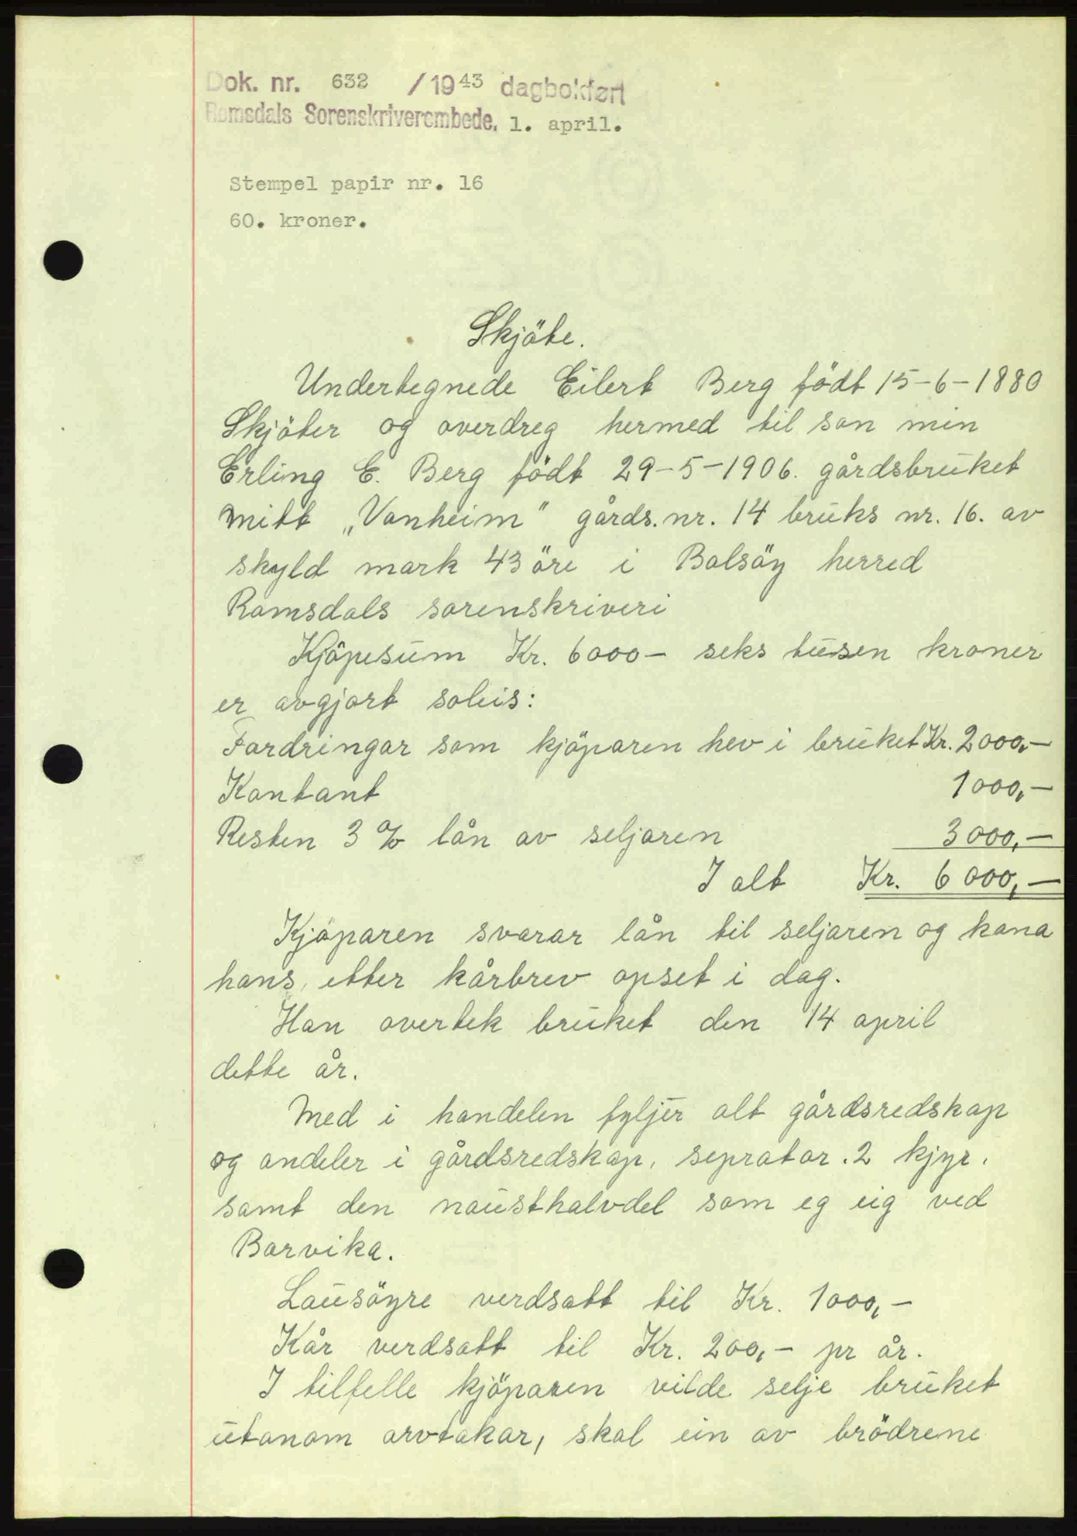 Dok. nr. 632 /1943 dagbokført
Romsdals Sorenskriverembede, 1. april.
Stempel papir nr. 16
60. kroner.
Skjöte.
Undertegnede Eilert Berg födt 15-6-1880
Skjöter og overdreg hermed til son min
Erling E. Berg födt 29-5-1906. gårdsbruket
mitt „Vonheim" gårds. nr. 14 bruks nr. 16. av
skyld mark 43 öre i Bolsöy herred
Romsdals sorenskriveri
Kjöpesum Kr. 6000- seks tusen kroner
er avgjort soleis:
Fordringar som kjöparen hev i bruket Kr. 2000,-
Kontant 1000,-
Resten 3 % lån av seljaren 3000,-
I alt Kr. 6000,-
Kjöparen svarar lån til seljaren og kona
hans, etter kårbrev opset i dag.
Han overtek bruket den 14 april
dette år.
Med i handelen fyljer alt gårdsredskap
og andeler i gårdsredskap, seprator. 2 kjyr,
samt den nausthalvdel som eg eig ved
Barvika.
Lausöyre verdsatt til Kr. 1000,-
Kår verdsatt til Kr. 200,- pr år.
I tilfelle kjöparen vilde selje bruket
utanom arvtakar, skal ein av brödrene